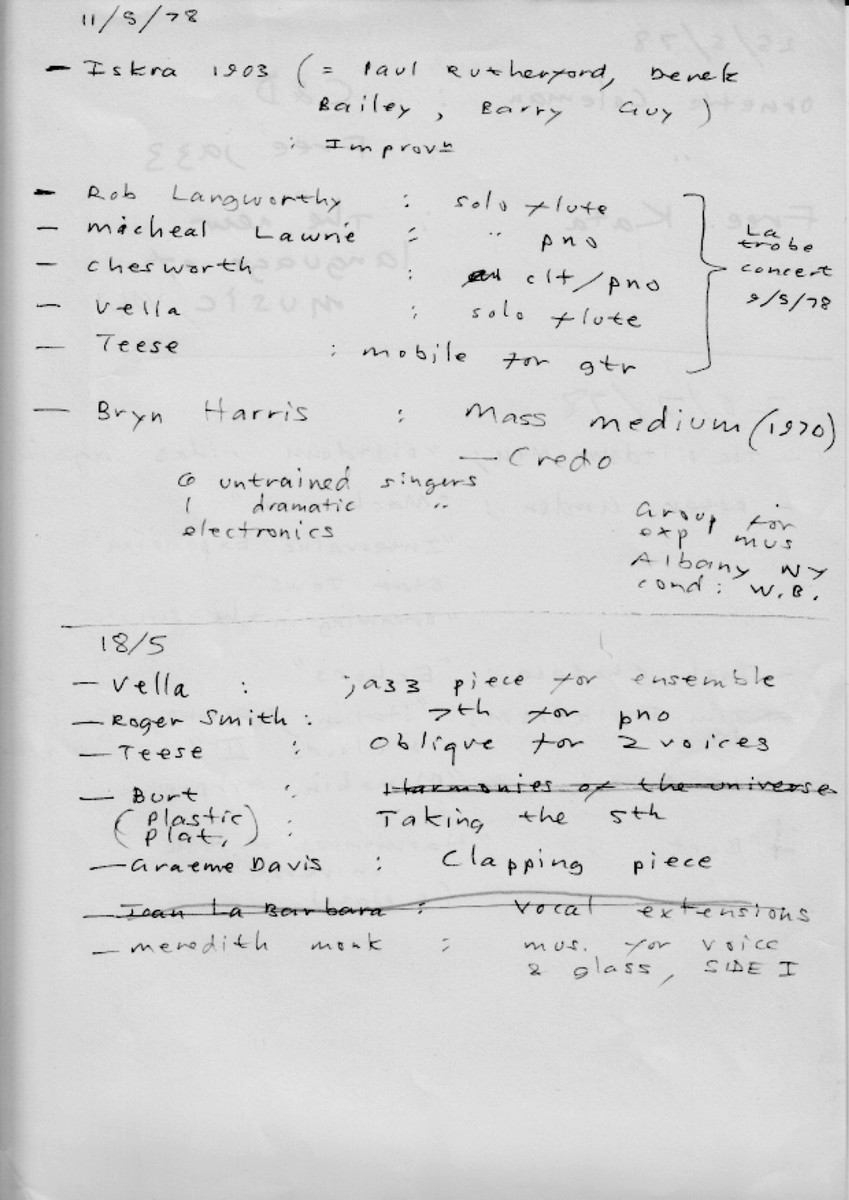 11/5/78
- Iskra 1903 (= Paul Rutherford, Derek
Bailey, Barry Guy)
: Improvn
- Rob Langworthy : solo flute
- Micheal Lawrie : " pno
- Chesworth : clt/pno
- Vella : solo flute
- Teese : mobile for gtr
La
trobe
concert
9/5/78
- Bryn Harris : Mass medium (1970)
- Credo
6 untrained singers
1 dramatic "
electronics
Group for
exp mus
Albany NY
cond: W.B.
18/5
- Vella : jazz piece for ensemble
- Roger Smith : 7th for pno
- Teese : Oblique for 2 voices
- Burt : Harmonies of the universe
(Plastic : Taking the 5th
Plat.)
- Graeme Davis : Clapping piece
- Joan La Barbara : Vocal extensions
- meredith monk : mus. for voice
& glass, SIDE I